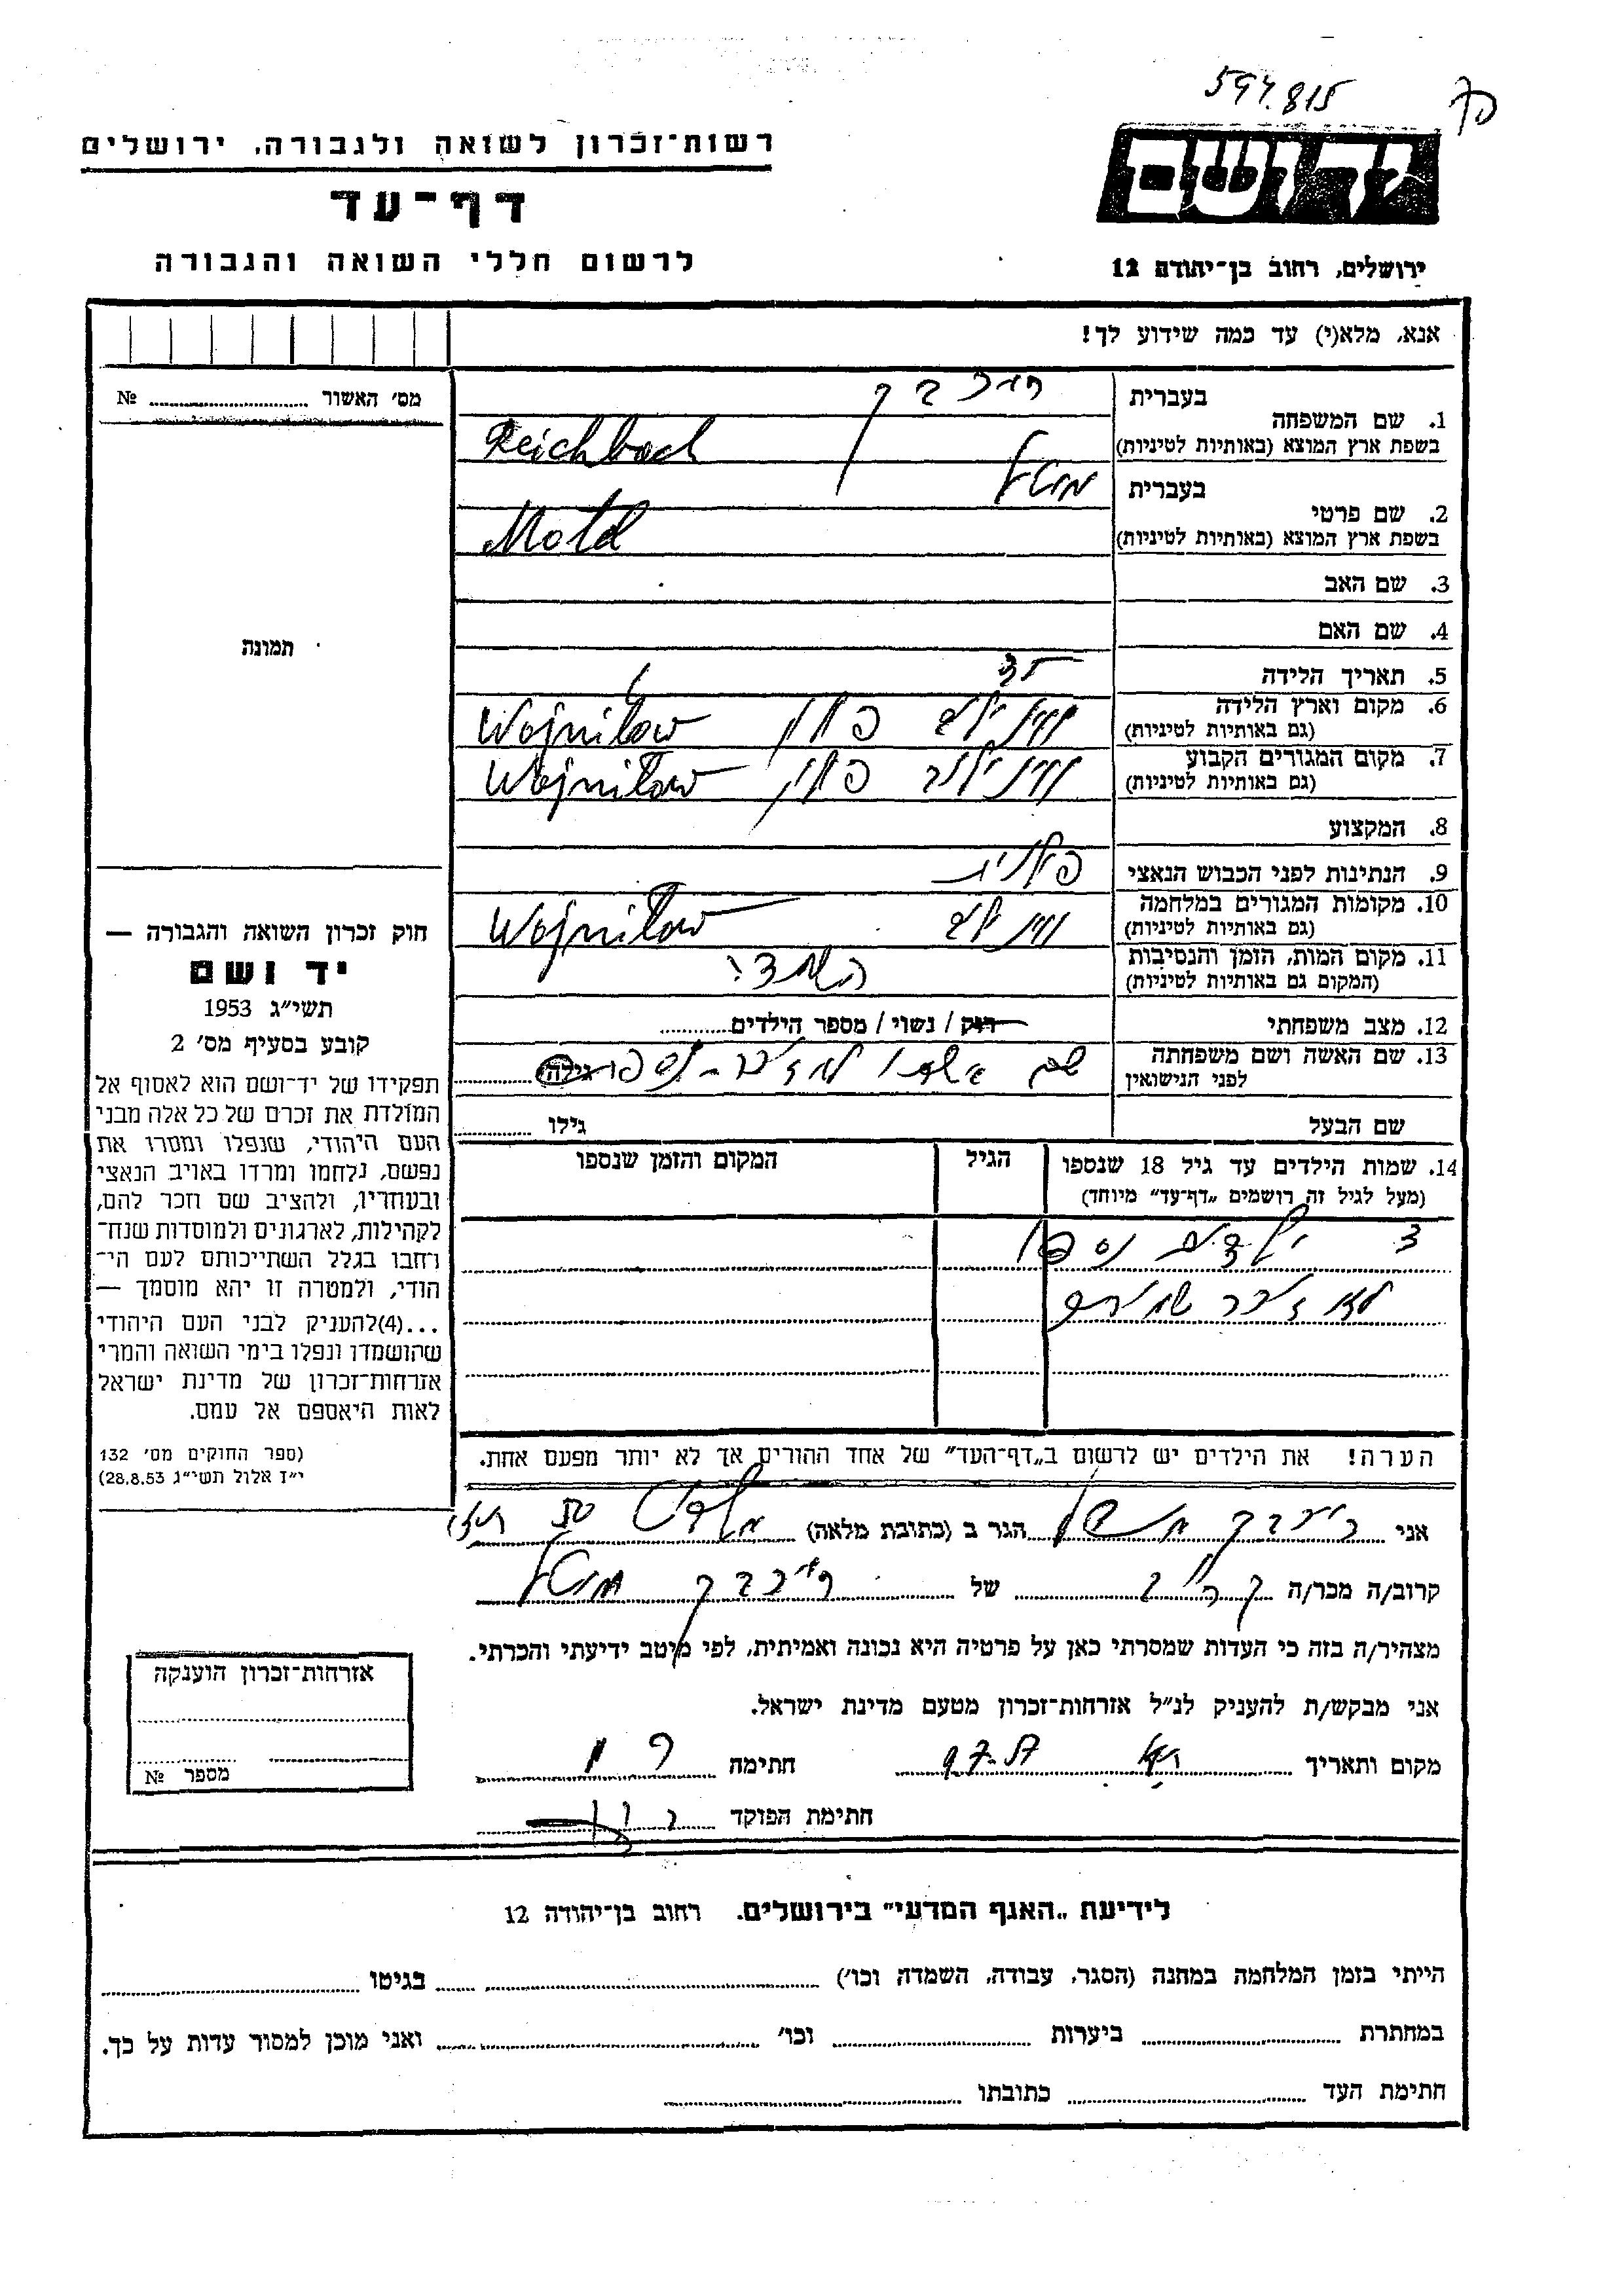 594.815
דף
יד ושם
רשות־זכרון לשואה ולגבורה, ירושלים
דף־עד
לרשום חללי השואה והגבורה
ירושלים, רחוב בן־יהודה 12
אנא, מלא(י) עד כמה שידוע לך!
מס׳ האשור № 
בעברית
1. שם המשפחה
Reichbach
בשפת ארץ המוצא (באותיות לטיניות)
בעברית מוטל
2. שם פרטי
Motel
בשפת ארץ המוצא (באותיות לטיניות)
3. שם האב
4. שם האם
תמונה
5. תאריך הלידה
6. מקום וארץ הלידה
פולין Wojnilow
(גם באותיות לטיניות)
7. מקום המגורים הקבוע
פולין Wojnilow
(גם באותיות לטיניות)
8. המקצוע
9. הנתינות לפני הכבוש הנאצי פולנית
10. מקומות המגורים במלחמה
Wojnilow
(גם באותיות לטיניות)
11. מקום המות, הזמן והנסיבות
(המקום גם באותיות לטיניות)
12. מצב משפחתי רוק / נשוי / מספר הילדים
13. שם האשה ושם משפחתה
לפני הנישואין
שם אשתו לא זכר - נספתה גילה
שם הבעל גילו
14. שמות הילדים עד גיל 18 שנספו הגיל המקום והזמן שנספו
(מעל לגיל זה רושמים „דף־עד״ מיוחד)
3 ילדים נספו
לא זכר שמותם
הערה! את הילדים יש לרשום ב„דף־העד״ של אחד ההורים אך לא יותר מפעם אחת.
חוק זכרון השואה והגבורה —
יד ושם
תשי״ג 1953
קובע בסעיף מס׳ 2
תפקידו של יד־ושם הוא לאסוף אל
המולדת את זכרם של כל אלה מבני
העם היהודי, שנפלו ומסרו את
נפשם, נלחמו ומרדו באויב הנאצי
ובעוזריו, ולהציב שם וזכר להם,
לקהילות, לארגונים ולמוסדות שנח־
רחבו בגלל השתייכותם לעם הי־
הודי, ולמטרה זו יהא מוסמך —
...(4)להעניק לבני העם היהודי
שהושמדו ונפלו בימי השואה והמרי
אזרחות־זכרון של מדינת ישראל
לאות היאספם אל עמם.
(ספר החוקים מס׳ 132
י״ז אלול תשי״ג 28.8.53)
אני הגר ב (כתובת מלאה)
קרוב/ה מכר/ה של מוטל
מצהיר/ה בזה כי העדות שמסרתי כאן על פרטיה היא נכונה ואמיתית, לפי מיטב ידיעתי והכרתי.
אני מבקש/ת להעניק לנ״ל אזרחות־זכרון מטעם מדינת ישראל.
מקום ותאריך חתימה
חתימת הפוקד
אזרחות־זכרון הוענקה
מספר №
לידיעת „האגף המדעי״ בירושלים. רחוב בן־יהודה 12
הייתי בזמן המלחמה במחנה (הסגר, עבודה, השמדה וכו׳) בגיטו
במחתרת ביערות וכו׳ ואני מוכן למסור עדות על כך.
חתימת העד כתובתו